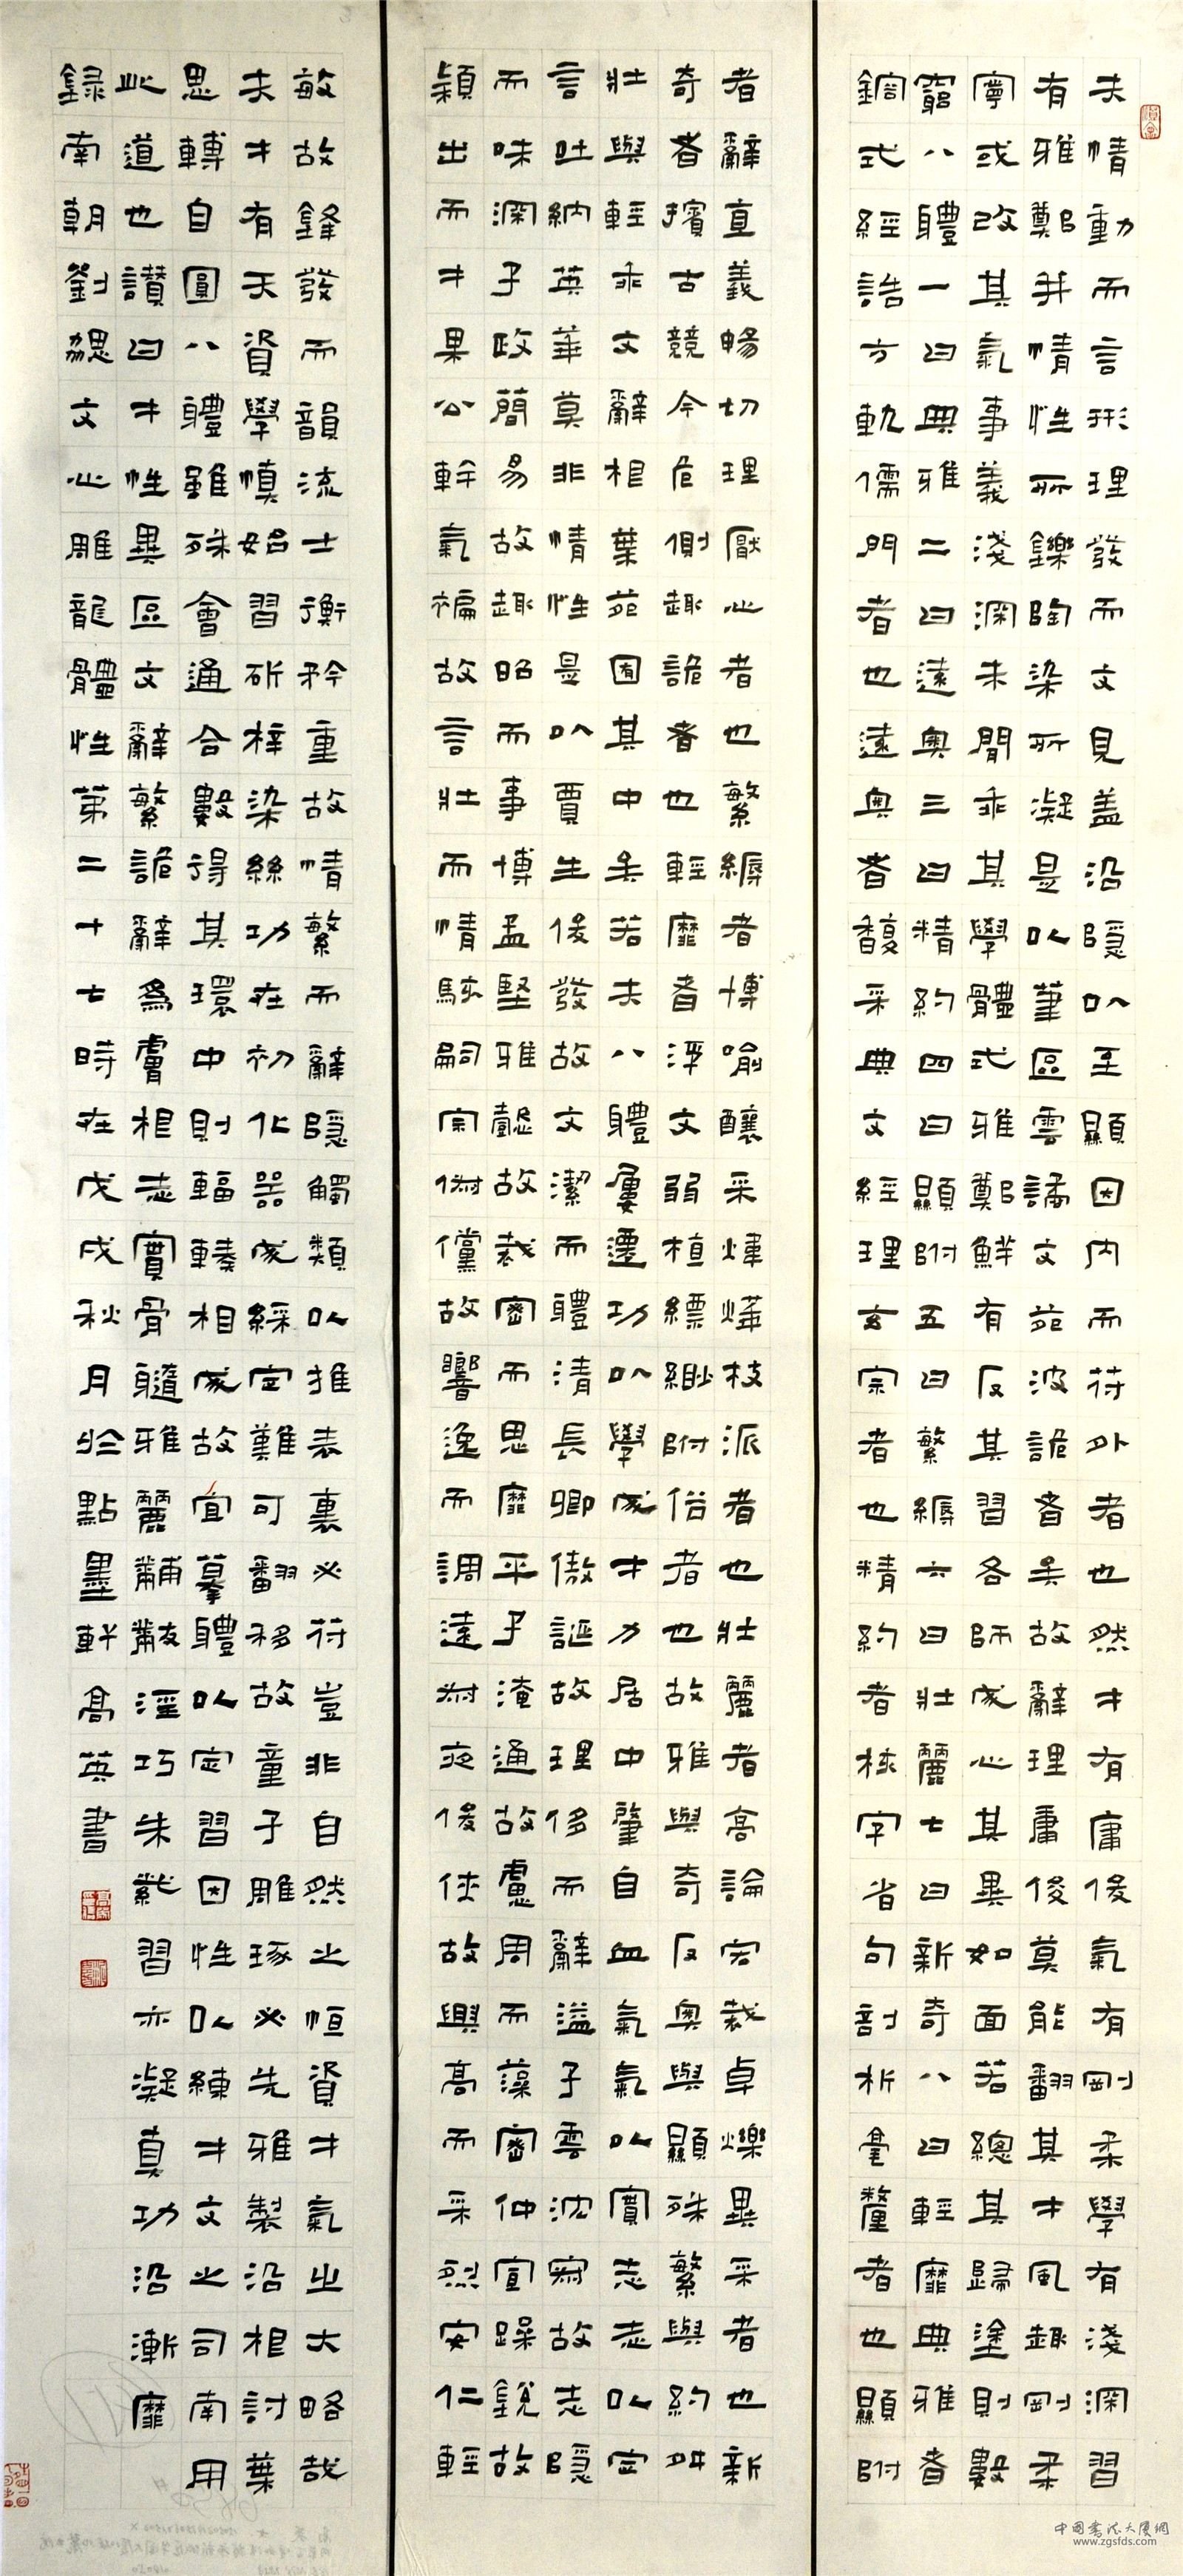 夫情動而言形理發而文見盖沿隱以至顯因內而符外者也然才有庸俊氣有剛柔學有淺深習
有雅鄭并情性所鑠陶染所凝是以筆區雲譎文苑波詭者矣故辭理庸俊莫能翻其才風趣剛柔
寧或改其氣事義淺深未聞乖其學體式雅鄭鮮有反其習各師成心其異如面若總其歸塗則數
窮八體一曰典雅二曰遠奧三曰精約四曰顯附五曰繁縟六曰壯麗七曰新奇八曰輕靡典雅者
鎔式經誥方軌儒門者也遠奧者馥采典文經理玄宗者也精約者核字省句剖析毫釐者也顯附
者辭直義暢切理厭心者也繁縟者博喻釀采煒燁枝派者也壯麗者高論宏裁卓爍異采者也新
奇者擯古競今危側趣詭者也輕靡者浮文弱植縹緲附俗者也故雅與奇反奧與顯殊繁與約舛
壯與輕乖文辭根葉苑囿其中矣若夫八體屢遷功以學成才力居中肇自血氣氣以實志志以定
言吐納英華莫非情性是以賈生俊發故文潔而體清長卿傲誕故理侈而辭溢子雲沈寂故志隱
而味深子政簡易故趣昭而事博孟堅雅懿故裁密而思靡平子淹通故慮周而藻密仲宣躁銳故
穎出而才果公幹氣褊故言壯而情駭嗣宗俶儻故響逸而調遠叔夜俊俠故興高而采烈安仁輕
敏故鋒發而韻流士衡矜重故情繁而辭隱觸類以推表裏必符豈非自然之恒資才氣之大略哉
夫才有天資學慎始習斫梓染絲功在初化器成綵定難可翻移故童子雕琢必先雅製沿根討葉
思轉自圓八體雖殊會通合數得其環中則輻輳相成故宜摹體以定習因性以練才文之司南用
此道也讚曰才性異區文辭繁詭辭為膚根志實骨髓雅麗黼黻淫巧朱紫習亦凝真功沿漸靡
録南朝劉勰文心雕龍體性第二十七時在戊戌秋月於點墨軒高英書
中國書法大廈網
www.zgsfds.com